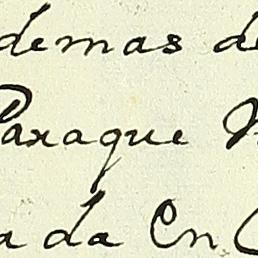 demas de
Paraque
ada En